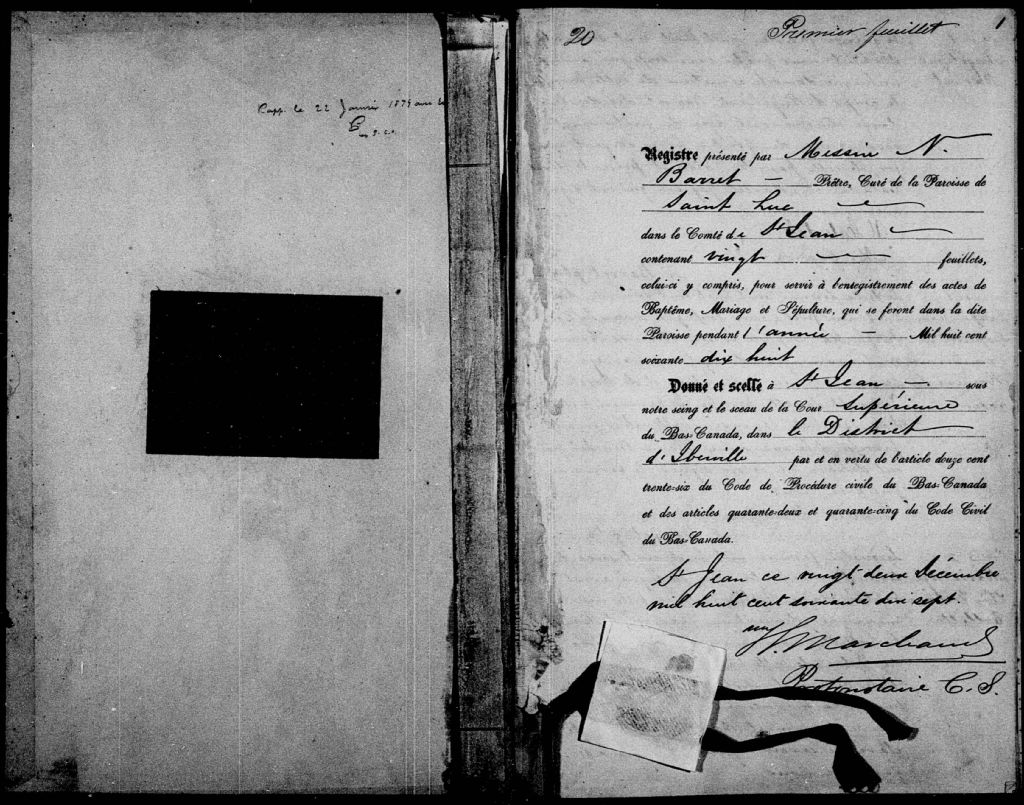 Capp. le 22 Janvier 1879
20
Premier feuillet
1
Registre présenté par Messire N.
Barret — Prêtre, Curé de la Paroisse de
Saint Luc
dans le Comté de St Jean
contenant vingt — feuillets,
celui-ci y compris, pour servir à l'enregistrement des actes de
Baptême, Mariage et Sépulture, qui se feront dans la dite
Paroisse pendant l'année — Mil huit cent
soixante dix huit
Donné et scellé à St Jean — sous
notre seing et le sceau de la Cour Supérieure
du Bas-Canada, dans le District
d'Iberville par et en vertu de l'article douze cent
trente-six du Code de Procédure civile du Bas-Canada
et des articles quarante-deux et quarante-cinq du Code Civil
du Bas-Canada.
St Jean ce vingt deux Décembre
mil huit cent soixante dix sept.
Marchand
Protonotaire C. S.